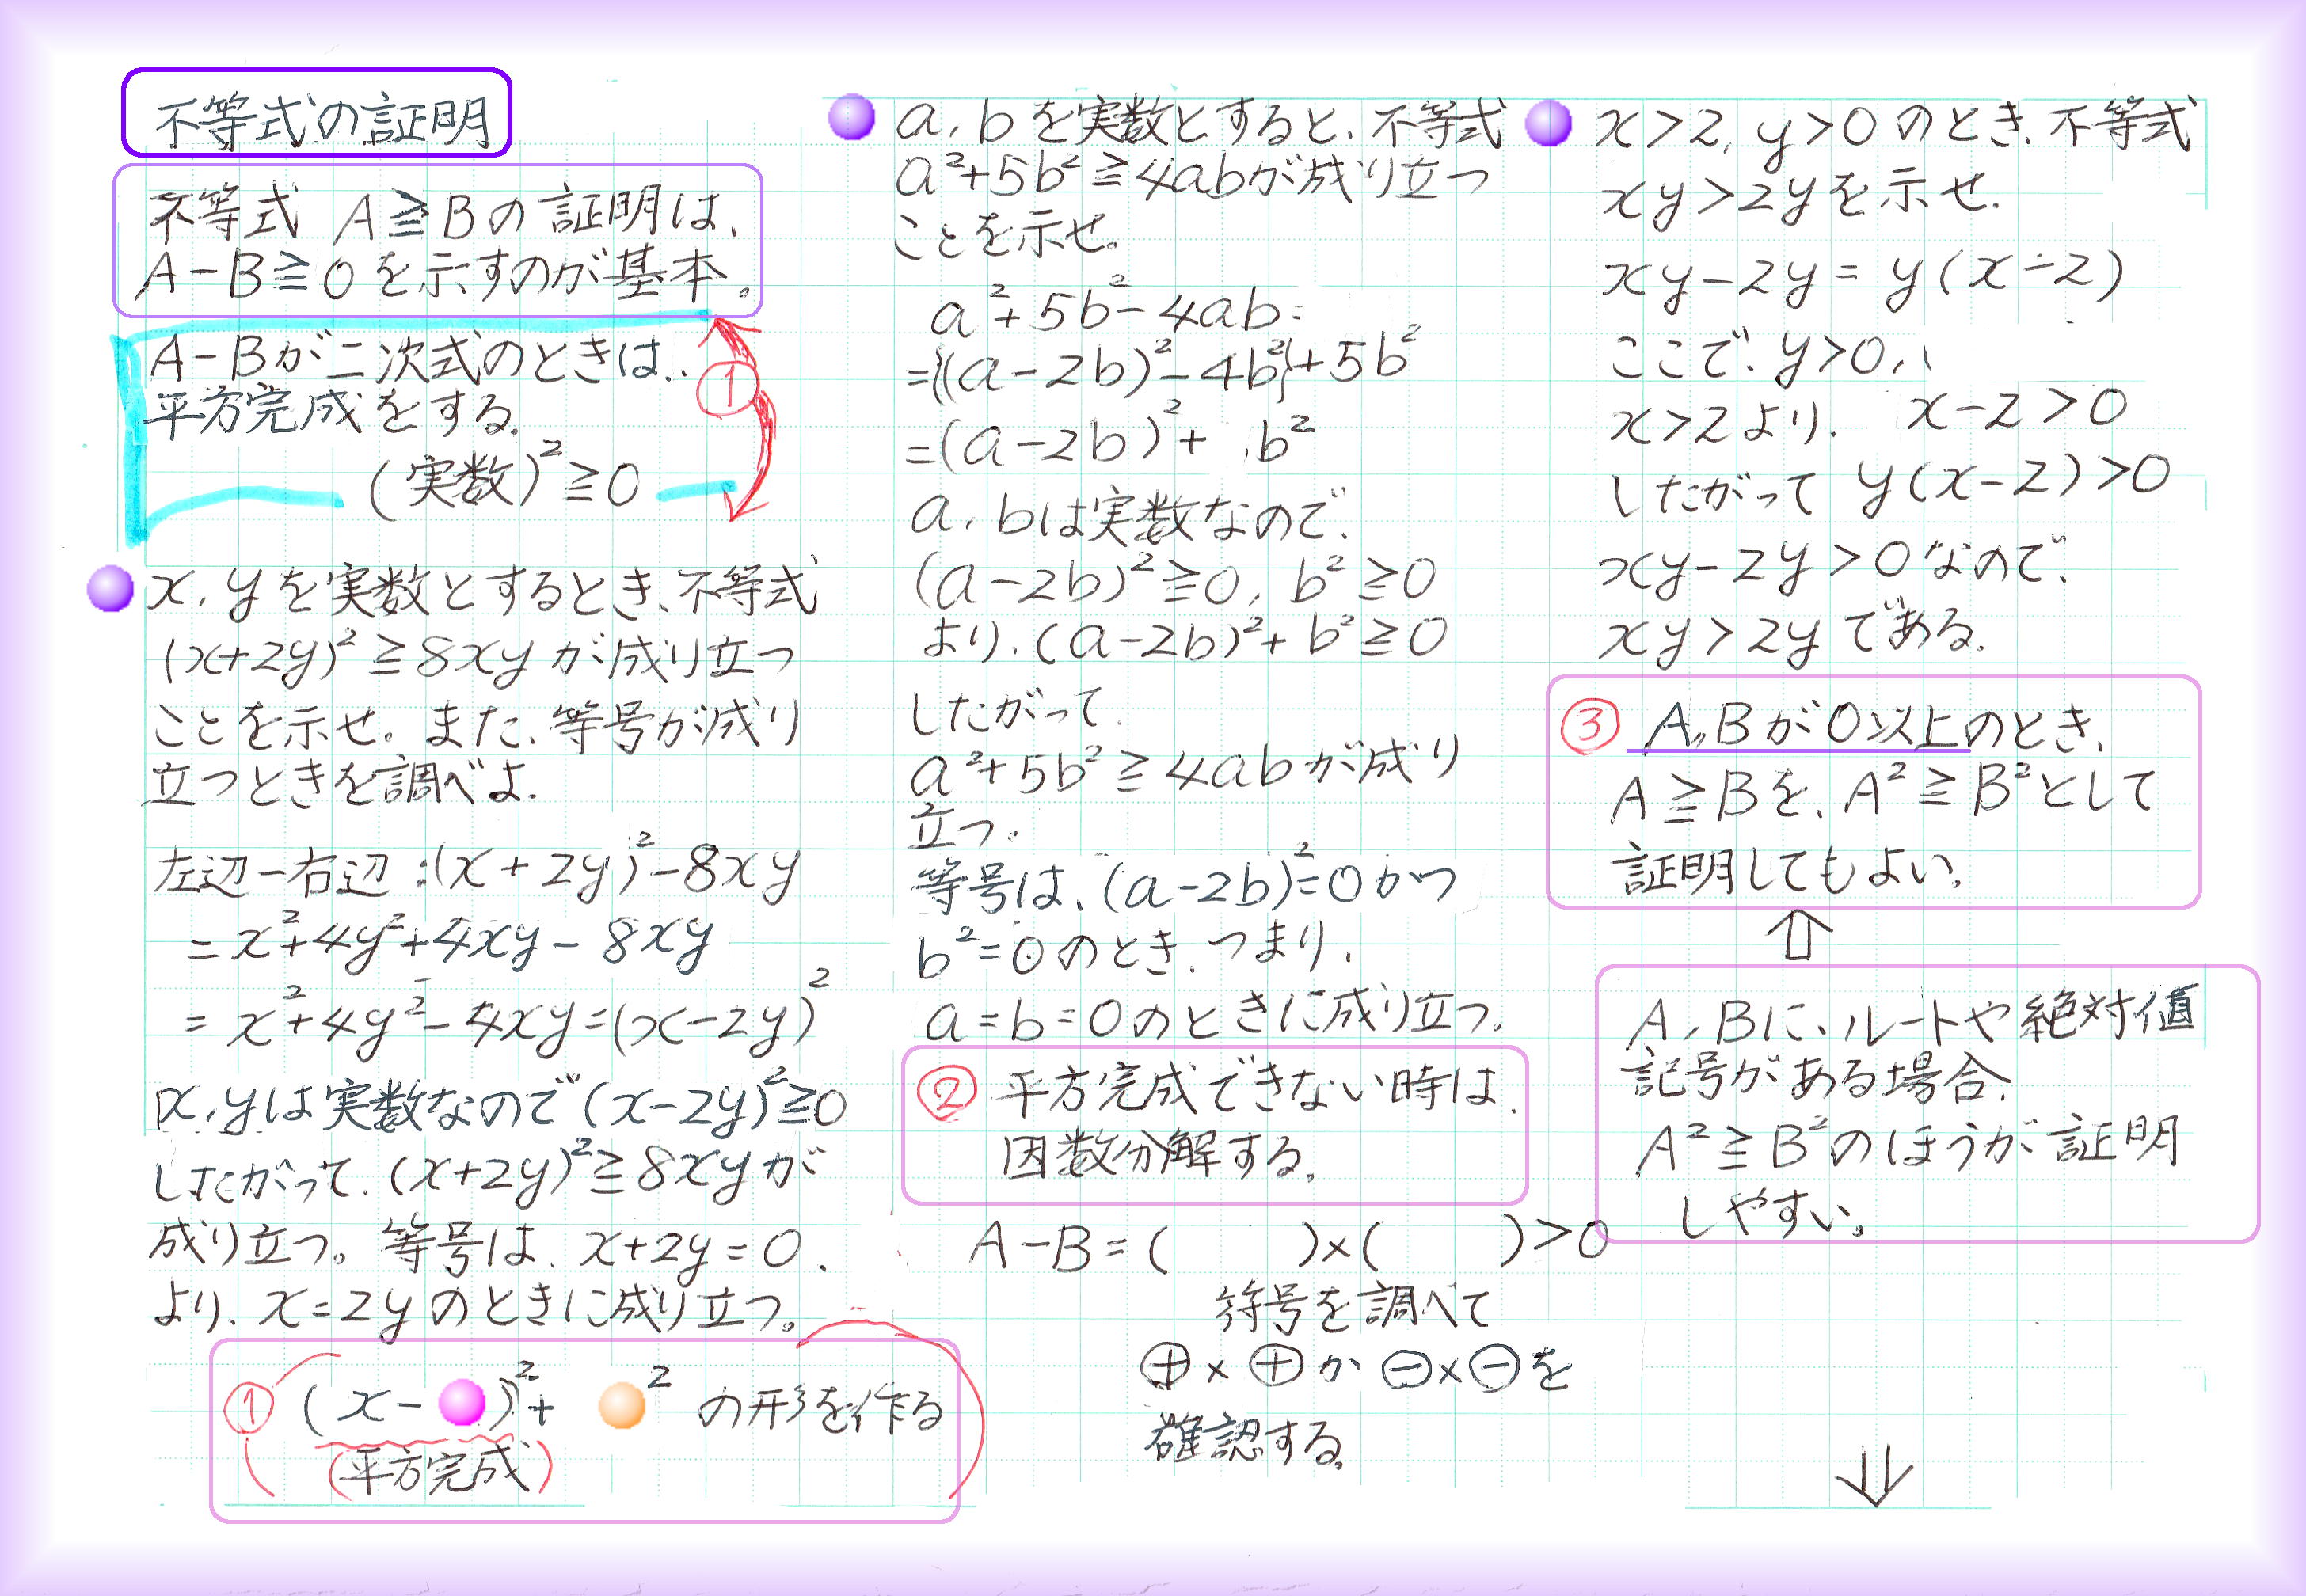 不等式の証明
不等式 A≧Bの証明は、
A−B≧0を示すのが基本。
A−Bが二次式のときは、
平方完成をする。
(実数)²≧0
①
x,yを実数とするとき、不等式
(x+2y)²≧8xyが成り立つ
ことを示せ。また、等号が成り
立つときを調べよ.
左辺−右辺:(x+2y)²−8xy
=x²+4y²+4xy−8xy
=x²+4y²−4xy=(x−2y)²
x,yは実数なので(x−2y)²≧0
したがって、(x+2y)²≧8xyが
成り立つ。等号は、x+2y=0、
より、x=2yのときに成り立つ。
① (x−●)²+●²の形を作る
(平方完成)
a,bを実数とすると、不等式
a²+5b²≧4abが成り立つ
ことを示せ。
a²+5b²−4ab=
={(a−2b)²−4b²}+5b²
=(a−2b)²+b²
a,bは実数なので、
(a−2b)²≧0, b²≧0
より、(a−2b)²+b²≧0
したがって、
a²+5b²≧4abが成り
立つ。
等号は、(a−2b)²=0かつ
b²=0のとき、つまり、
a=b=0のときに成り立つ。
② 平方完成できない時は、
因数分解する。
A−B=(  )×(  )>0
符号を調べて
⊕×⊕か⊖×⊖を
確認する。
x>2, y>0のとき、不等式
xy>2yを示せ.
xy−2y=y(x−2)
ここで、y>0、
x>2より、 x−2>0
したがって y(x−2)>0
xy−2y>0なので、
xy>2yである.
③ A,Bが0以上のとき、
A≧Bを、A²≧B²として
証明してもよい。
⇧
A,Bに、ルートや絶対値
記号がある場合、
A²≧B²のほうが証明
しやすい。
⇓